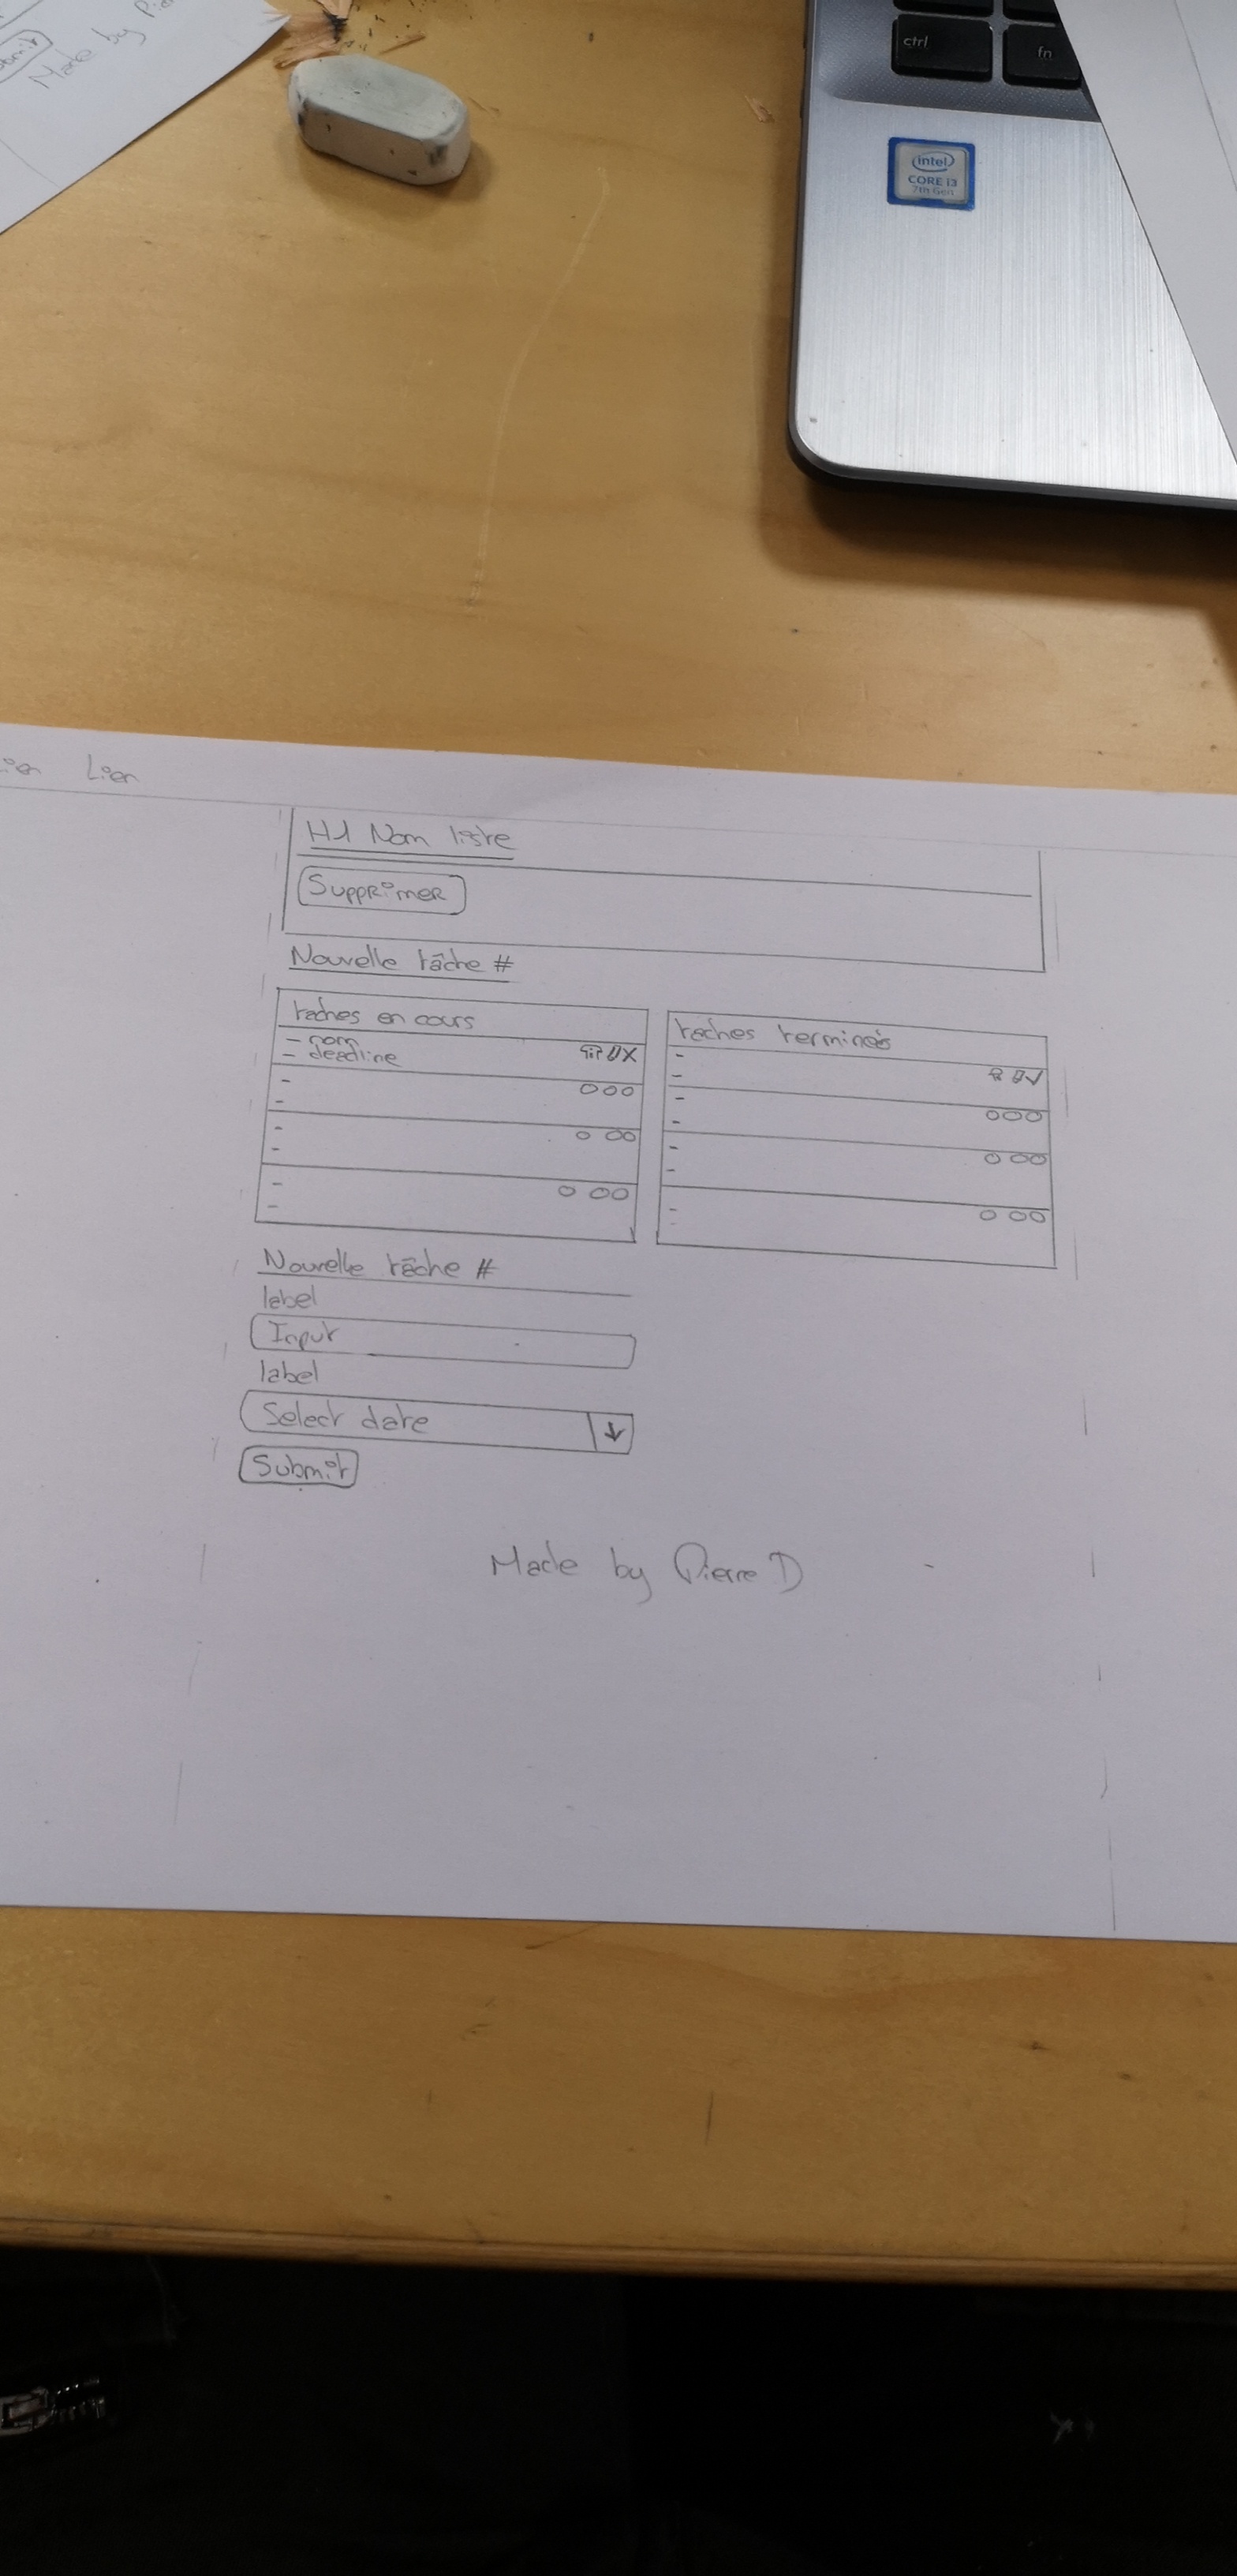 Submit
Made by Pie
ctrl
fn
intel
CORE i3
7th Gen
Lien
H1 Nom liste
Supprimer
Nouvelle tâche #
taches en cours
- nom
- deadline
X
-
-
-
-
-
-
taches terminés
-
-
-
-
-
-
-
-
Nouvelle tâche #
label
Input
label
Select date
Submit
Made by Pierre D